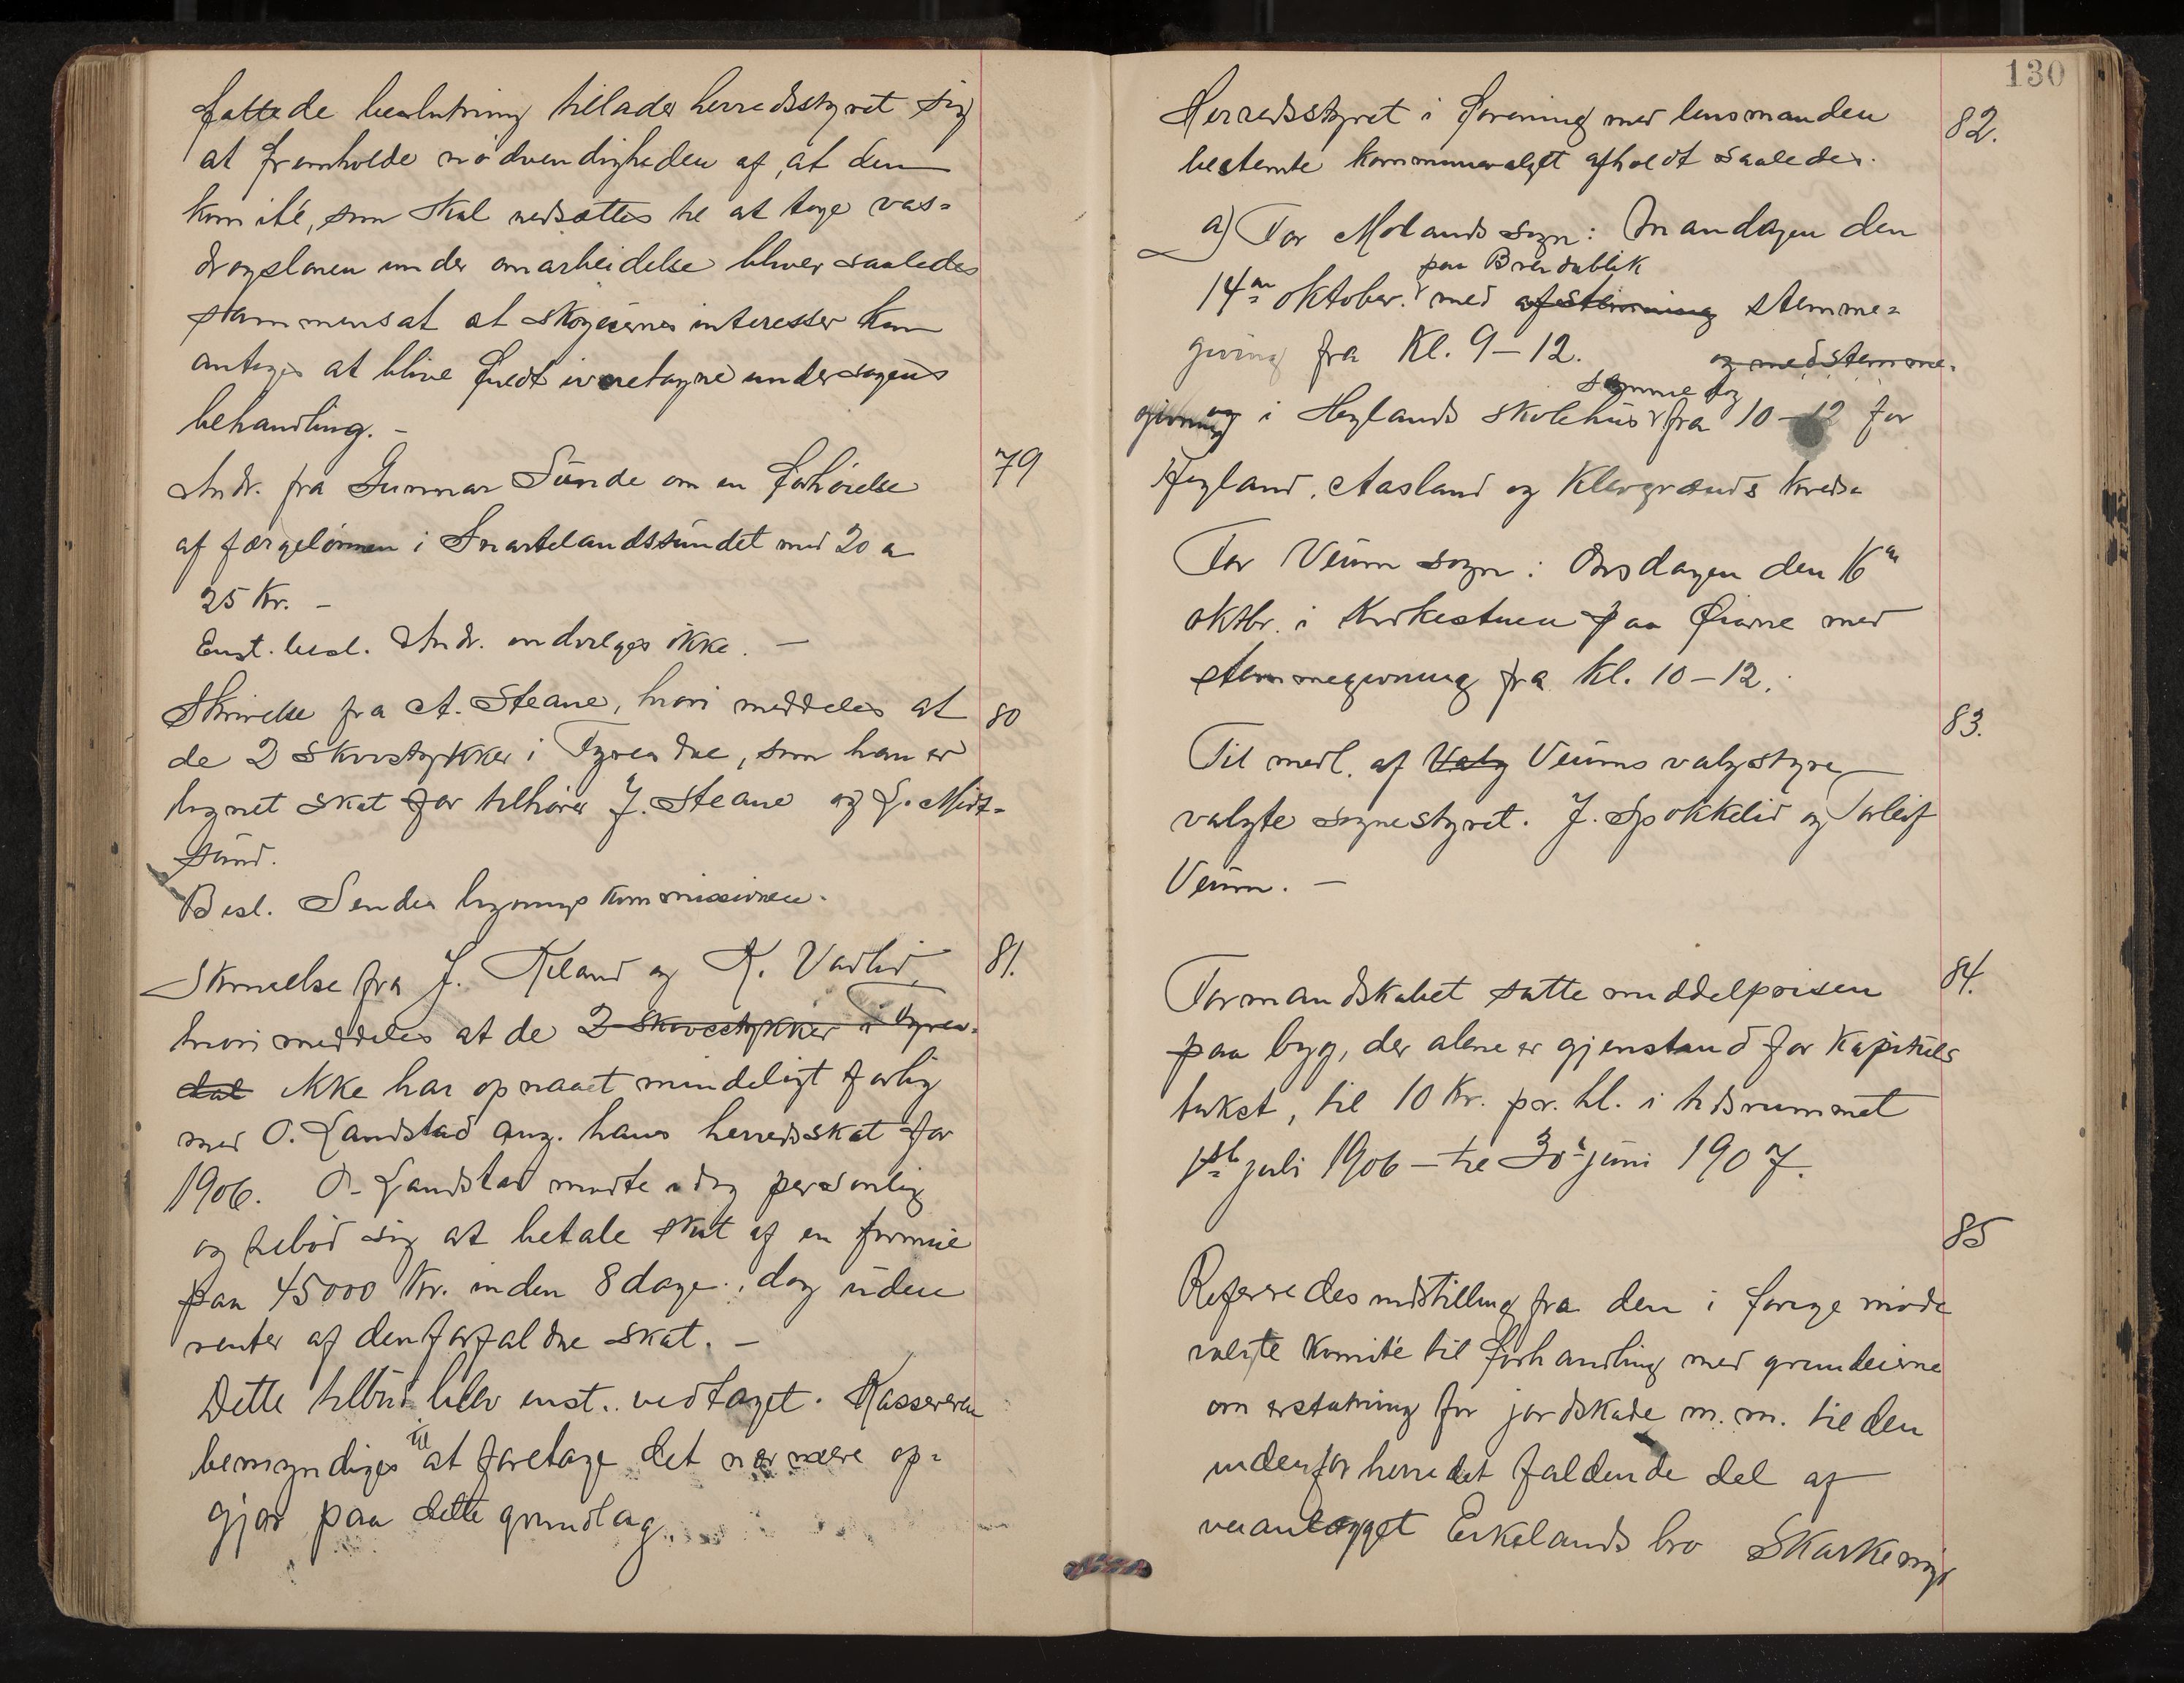 fattede beslutning tillader herredsstyret sig
at fremholde nødvendigheden af, at den
komité, som skal nedsættes til at tage vas=
dragsloven under omarbeidelse bliver saaledes
sammensat at skogeiernes interesser kan
antages at blive fuldt ivaretagne under sagens
behandling. –
79
Andr. fra Gunnar Sunde om en forhøielse
af færgelønnen i Snartelandssundet med 20 a
25 Kr. –
Enst. besl. Andr. indvilges ikke. –
80
Skrivelse fra A. Steane, hvori meddeles at
de 2 skovstykker i Tyrendal, som han er
lignet skat for tilhører J. Steane og L. Midt=
sund.
Besl. Sendes ligningskommissionen.
81.
Skrivelse fra J. Kiland og K. Vadlid,
hvori meddeles at de 2 skovstykker i Tyren=
dal ikke har opnaaet mindeligt forlig
med O. Landstad ang. hans herredsskat for
1906. O. Landstad mødte idag personlig
og tilbød sig at betale skat af en formue
paa 45000 Kr. inden 8 dage, dog uden
renter af den forfaldne skat. –
Dette tilbud blev enst. vedtaget. Kassereren
bemyndiges til at foretage det nærmere op=
gjør paa dette grundlag.
130
82.
Herredsstyret i forening med lensmanden
bestemte kommunevalget afholdt saaledes.
a) For Molands sogn: Mandagen den
paa Brendablik
14de oktober. med afstemning stemme=
givning fra Kl. 9–12. og med stemme=
samme dag
givning og i Høglands skolehus fra 10–12 for
Høgland, Aasland og Klevgrænds kreds.
For Veum sogn: Onsdagen den 16de
oktbr. i Kirkestuen paa Øiane med
stemmegivning fra Kl. 10–12.
83.
Til medl. af Valg Veums valgstyre
valgte sognestyret. J. Spokkelid og Torleif
Veum. –
84.
Formandskabet satte middelprisen
paa byg, der alene er gjenstand for kapitels
takst, til 10 Kr. pr. hl. i tidsrummet
1ste juli 1906 – til 30te juni 1907.
85
Referredes indstilling fra den i forrige møde
valgte komité til forhandling med grundeierne
om erstatning for jordskade m. m. til den
indenfor herredet faldende del af
veianlægget Eikelands bro Skarkemyr